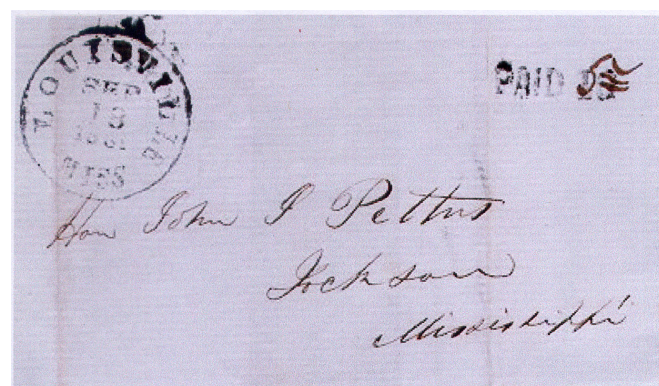 LOUISVILLE
SEP
18
1861
MISS
PAID
Hon John J Pettus
Jackson
Mississippi